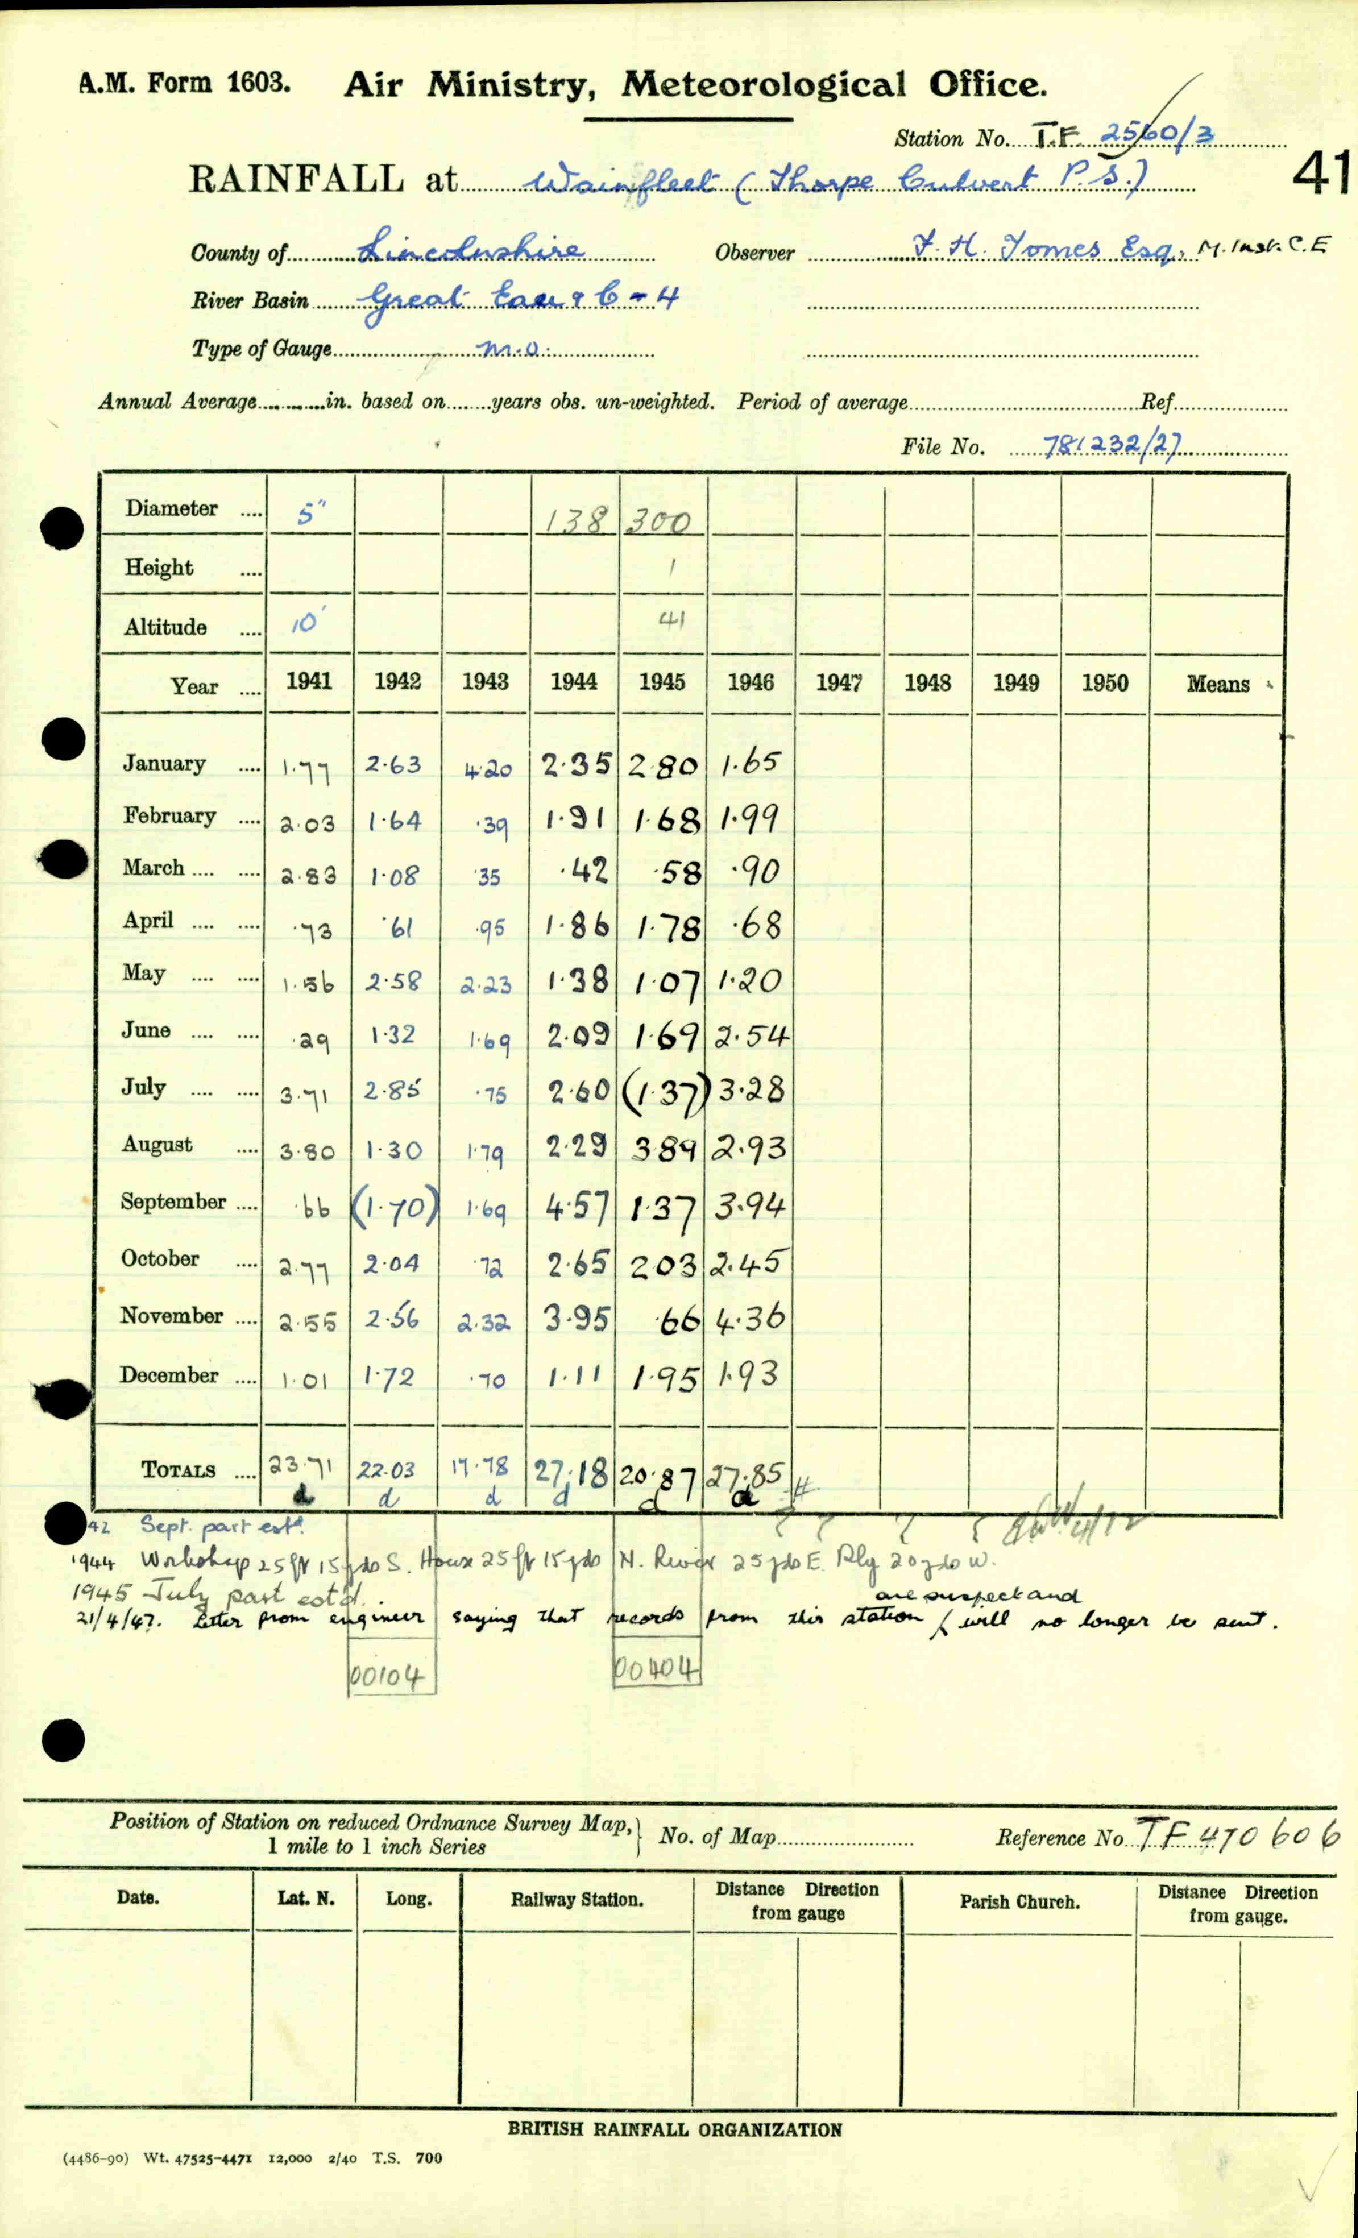 A.M. Form 1603. Air Ministry, Meteorological Office.
Station No. T.F. 2560/3
RAINFALL at Wainfleet (Thorpe Culvert P.S.) 41
County of Lincolnshire Observer F. H. Tomes Esq, M. Inst. C.E
River Basin Great Eau & C - 4
Type of Gauge M.O.
Annual Average in. based on years obs. un-weighted. Period of average Ref.
File No. 781232/27
Diameter .... 5" 138 300
Height .... 1
Altitude .... 10' 41
Year .... 1941 1942 1943 1944 1945 1946 1947 1948 1949 1950 Means
January .... 1.77 2.63 4.20 2.35 2.80 1.65
February .... 2.03 1.64 .39 1.91 1.68 1.99
March .... .... 2.83 1.08 .35 .42 .58 .90
April .... .... .73 .61 .95 1.86 1.78 .68
May .... .... 1.56 2.58 2.23 1.38 1.07 1.20
June .... .... .29 1.32 1.69 2.09 1.69 2.54
July .... .... 3.71 2.85 .75 2.60 (1.37) 3.28
August .... 3.80 1.30 1.79 2.29 3.89 2.93
September .... .66 (1.70) 1.69 4.57 1.37 3.94
October .... 2.77 2.04 .72 2.65 2.03 2.45
November .... 2.55 2.56 2.32 3.95 .66 4.36
December .... 1.01 1.72 .70 1.11 1.95 1.93
TOTALS .... 23.71 22.03 17.78 27.18 20.87 27.85 #
d d d d d d
42 Sept. part estd.
1944 Workshop 25ft 15yds S. House 25ft 15yds N. River 25yds E. Rly 20yds W.
1945 July part estd.
21/4/47. Letter from engineer saying that records from this station are suspect and will no longer be sent.
00104 00404
Position of Station on reduced Ordnance Survey Map, 1 mile to 1 inch Series } No. of Map Reference No. TF 470606
Date. Lat. N. Long. Railway Station. Distance Direction from gauge Parish Church. Distance Direction from gauge.
BRITISH RAINFALL ORGANIZATION
(4486-90) Wt. 47525-4471 12,000 2/40 T.S. 700